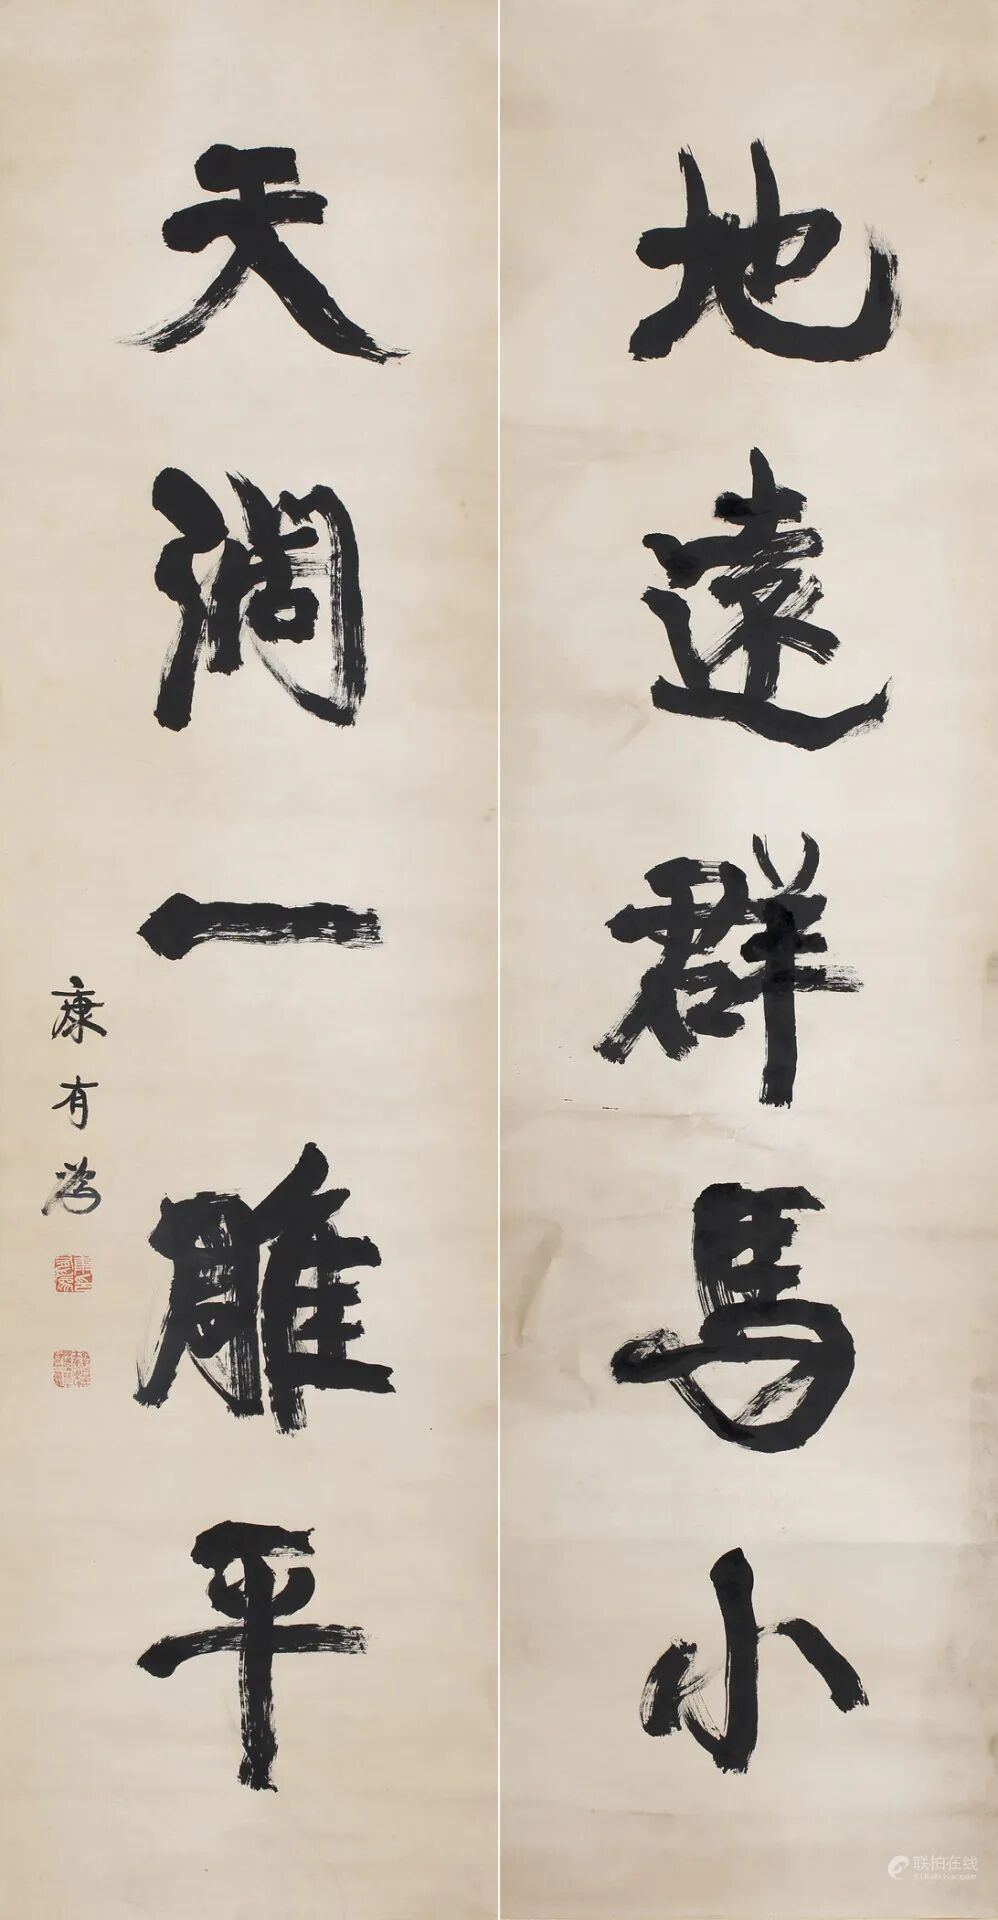 地遠群馬小
天濶一雕平
康有為
联拍在线